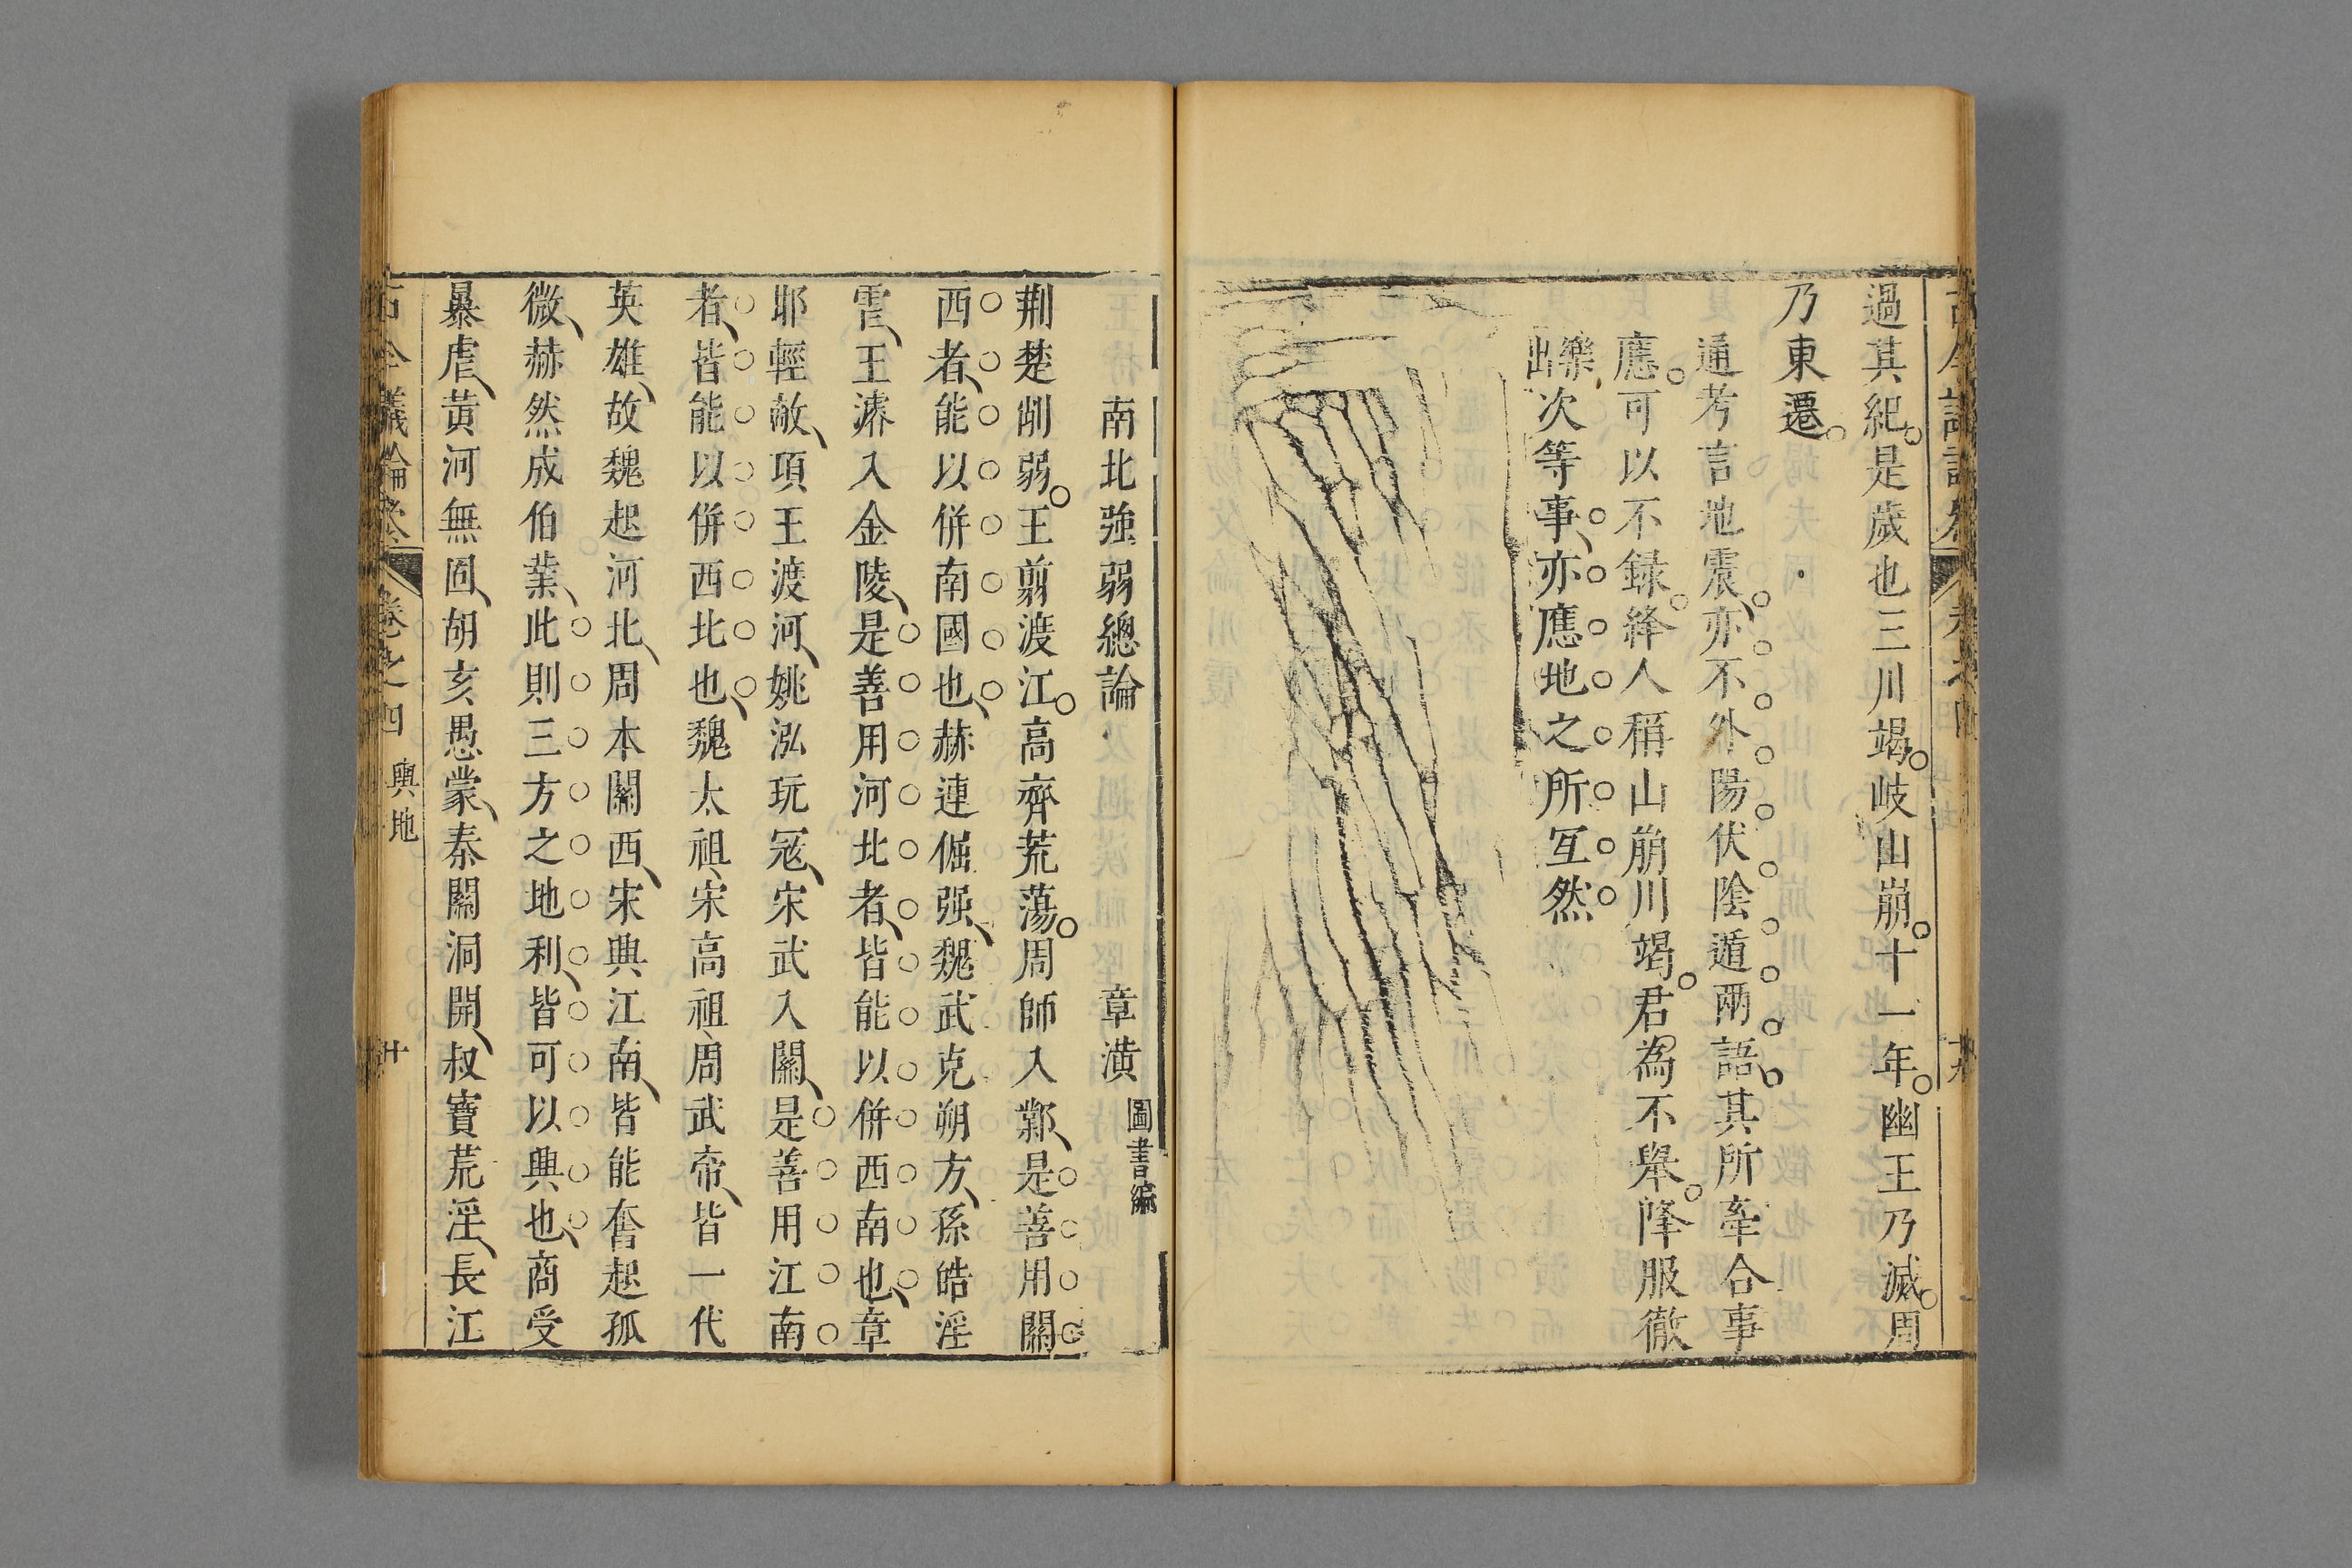 過其紀是歲也三川竭岐山崩十一年幽王乃滅周
乃東遷
通考言地震亦不外陽伏陰遁兩語其所牽合事
應可以不録絳人稱山崩川竭君為不舉降服徹
樂出次等事亦應地之所互然
南北強弱總論 章潢 圖書編
荆楚削弱王翦渡江高齊荒蕩周師入鄴是善用關
西者能以併南國也赫連倔强魏武克朔方孫皓淫
王濬入金陵是善用河北者皆能以併西南也章
耶輕敵項王渡河姚泓玩冦宋武入關是善用江南
者皆能以併西北也魏太祖宋高祖周武帝皆一代
英雄故魏起河北周本關西宋興江南皆能奮起孤
微赫然成伯業此則三方之地利皆可以興也商受
暴虐黄河無固胡亥愚蒙秦關洞開叔寶荒淫長江
古今議論參 卷之四 輿地 十